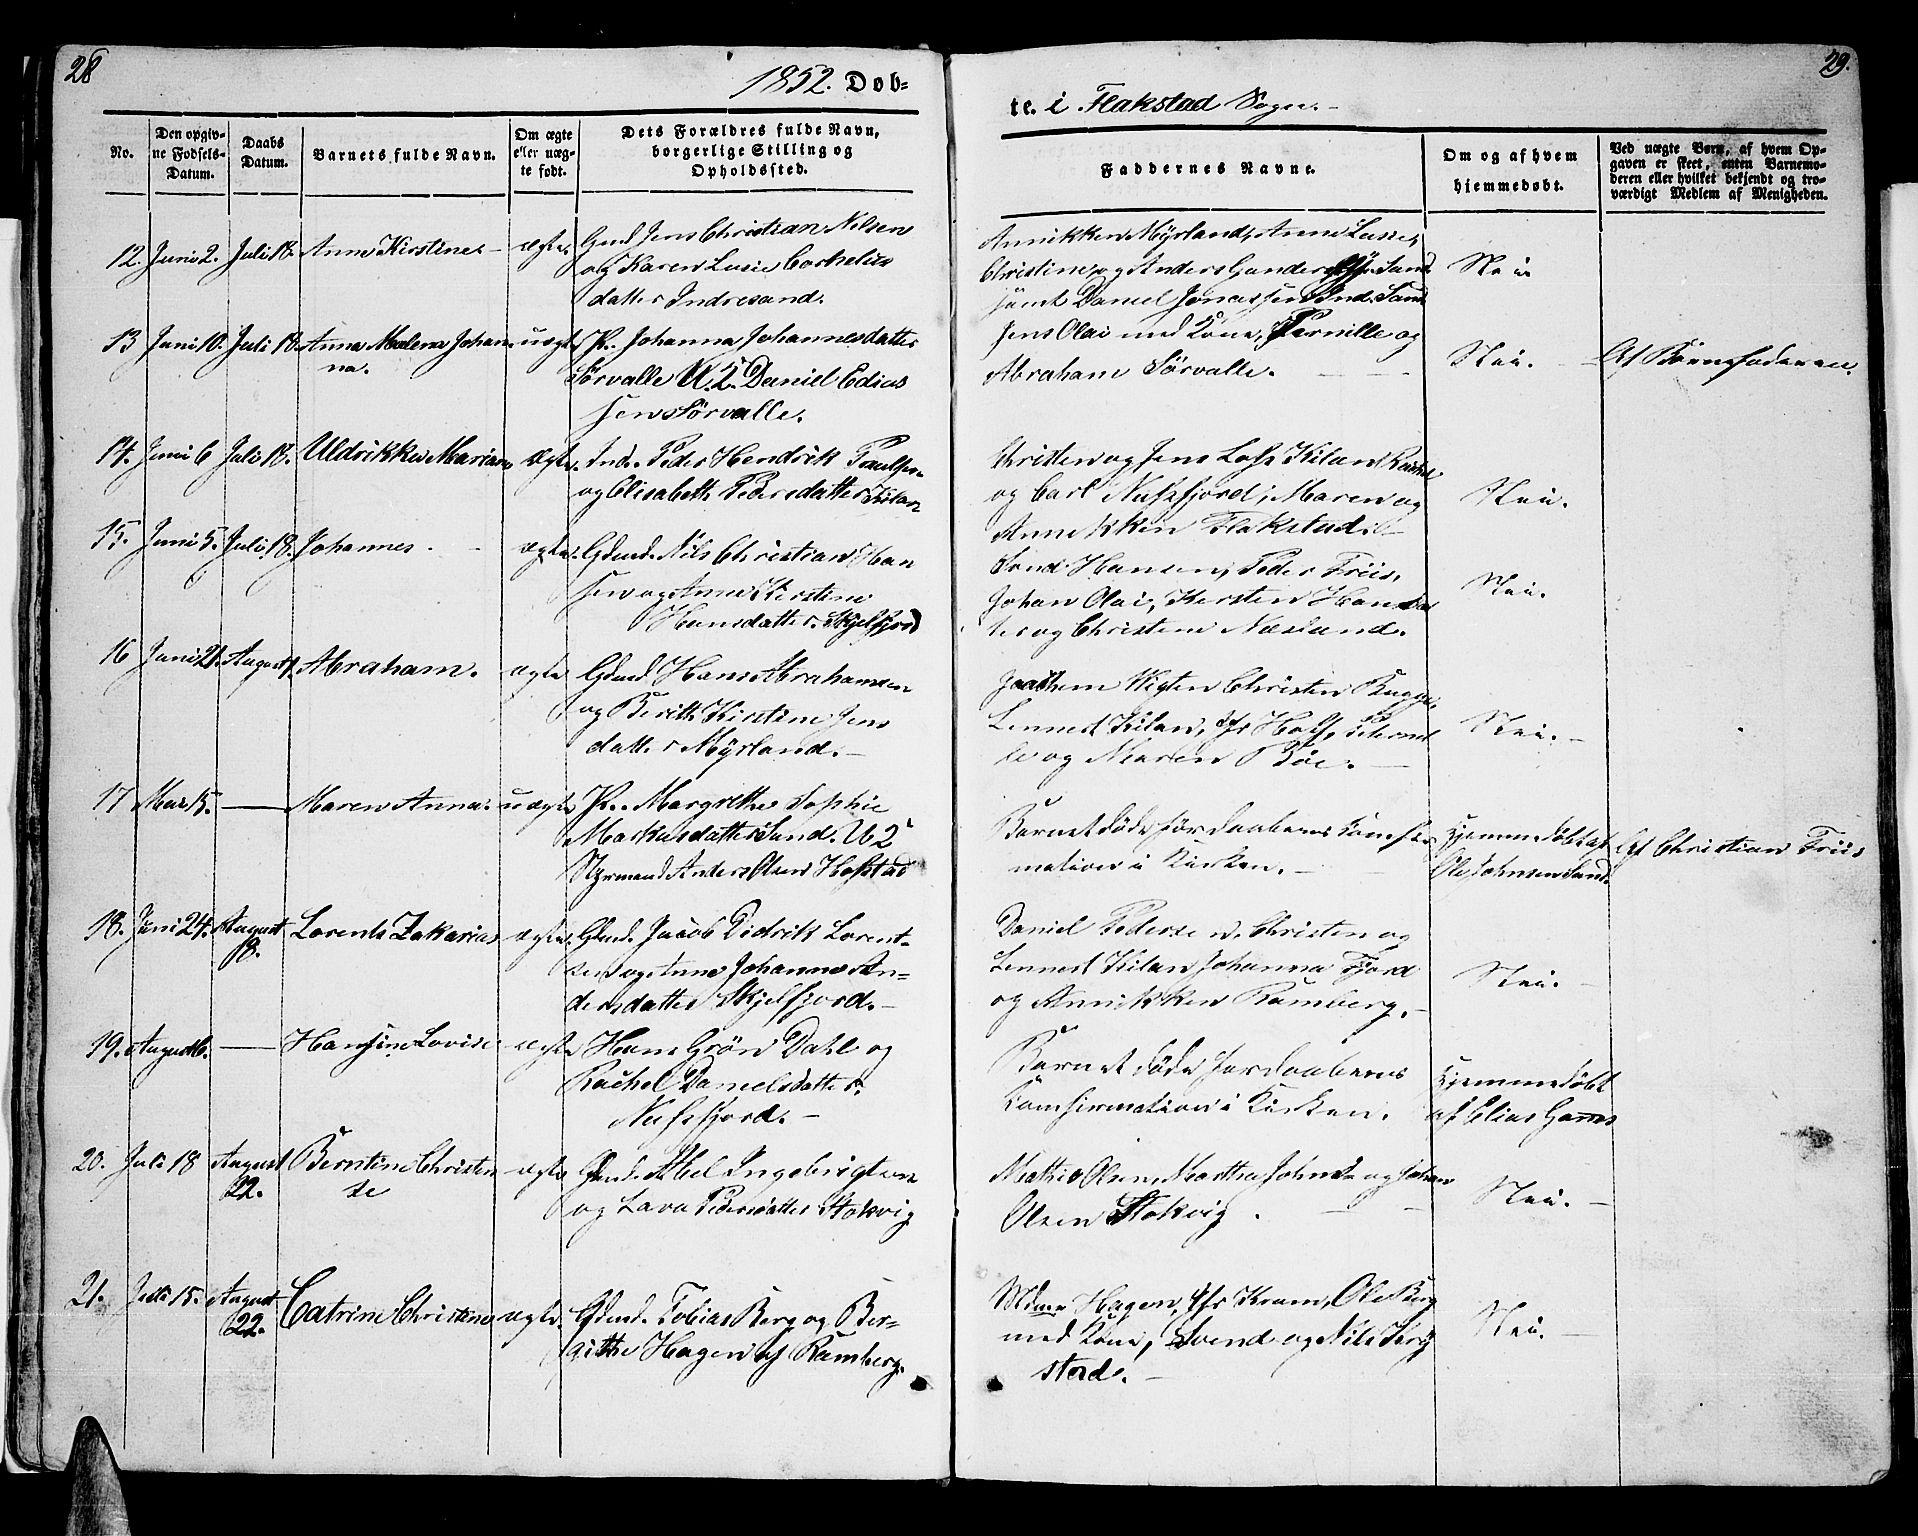 28
1852. Døb-
29.
te. i Flakstad Sogn.
No.
Den opgiv-
ne Fødsels-
Datum.
Daabs
Datum.
Barnets fulde Navn.
Om ægte
eller uæg-
te født.
Dets Forældres fulde Navn,
borgerlige Stilling og
Opholdssted.
Faddernes Navne.
Om og af hvem
hjemmedøbt.
Ved uægte Børn, af hvem Op-
gaven er skeet, enten Barnemo-
deren eller hvilket bekjendt og tro-
værdigt Medlem af Menigheden.
12. Juni 2. Juli 18. Anne Kirstine ægte. Gmd Jens Christian Nilsen
og Karen Lusie Cornelius
datter Indresand.
Annikken Myrland, Anne Lusie,
Christine og Anders Sand
samt Daniel Jonassen Ind. Sand
Nei.
13 Juni 10. Juli 18. Anna Malena Johan uægte P. Johanna Johannesdatter
na.
Sørvalle U. 2. Daniel Edias
sen Sørvalle.
Jens Olai med Kone, Pernille og
Abraham Sørvalle.
Nei.
Af Barnefaderen.
14. Juni 6 Juli 18. Uldrikke Mariane ægte. Ind. Peder Hendrik Paulsen
og Elisabeth Pedersdatter Kilan
Christen og Jens Kilan
og Carl Nussfjord, Maren og
Annekken Flakstad.
Nei.
15. Juni 5. Juli 18. Johannes. ægte. Gdmd. Nils Christian Han
sen og Anne Kirstine
Hansdatter. Skjelfjord
Hansen, Peder Friis,
Johan Olai, Kersten Hansdat
ter og Christine Næsland.
Nei.
16 Juni 21. August 1. Abraham. ægte Gdmd Hans Abrahamsen
og Berith Kirstine Jens
datter Myrland.
Jochem Wigten Christen Bugge,
Lennert Kilan,
og Maren Bøe.
Nei.
17 Mai 15. Maren Anna. uægte P. Margrethe Sophie
Markusdatter Sand. U 2
Styrmand Anders Olsen Hofstad
Barnet døde før Daabens Konfir
mation i Kirken.
Hjemmedøbt af
Ole Johnsen Sand.
Af Christian Friis
18. Juni 24. August
8.
Lorents Zakarias ægte. Gdmd. Jacob Didrik Lorent-
sen og Anne Johanna An-
dersdatter Skjelfjord.
Daniel Pedersen, Christen og
Lennert Kilan Johanna Fjord
og Annikken Ramberg.
Nei.
19. August 6. Hansine Lovise ægte Hans Grøn Dahl og
Rachel Danielsdatter.
Nussfjord.
Barnet døde før Daabens
Konfirmation i Kirken.
Hjemmedøbt
af Elias Hanns
20. Juli 18 August
22.
Berntine Christen
se
ægte Gdmd. Abel Ingebrigtsen
og Lava Pedersdatter Stokvig
Mathis Olsen, Martha Johns og Johan
Olsen Stokvig.
Nei.
21. Juli 15. August
22.
Catrine Christine ægte. Gdmd. Tobias Berg og Ber-
githe Hagen af Ramberg.
Hagen, Kram, Ole Berg
med Kone, Svend og Nils
stad.
Nei.